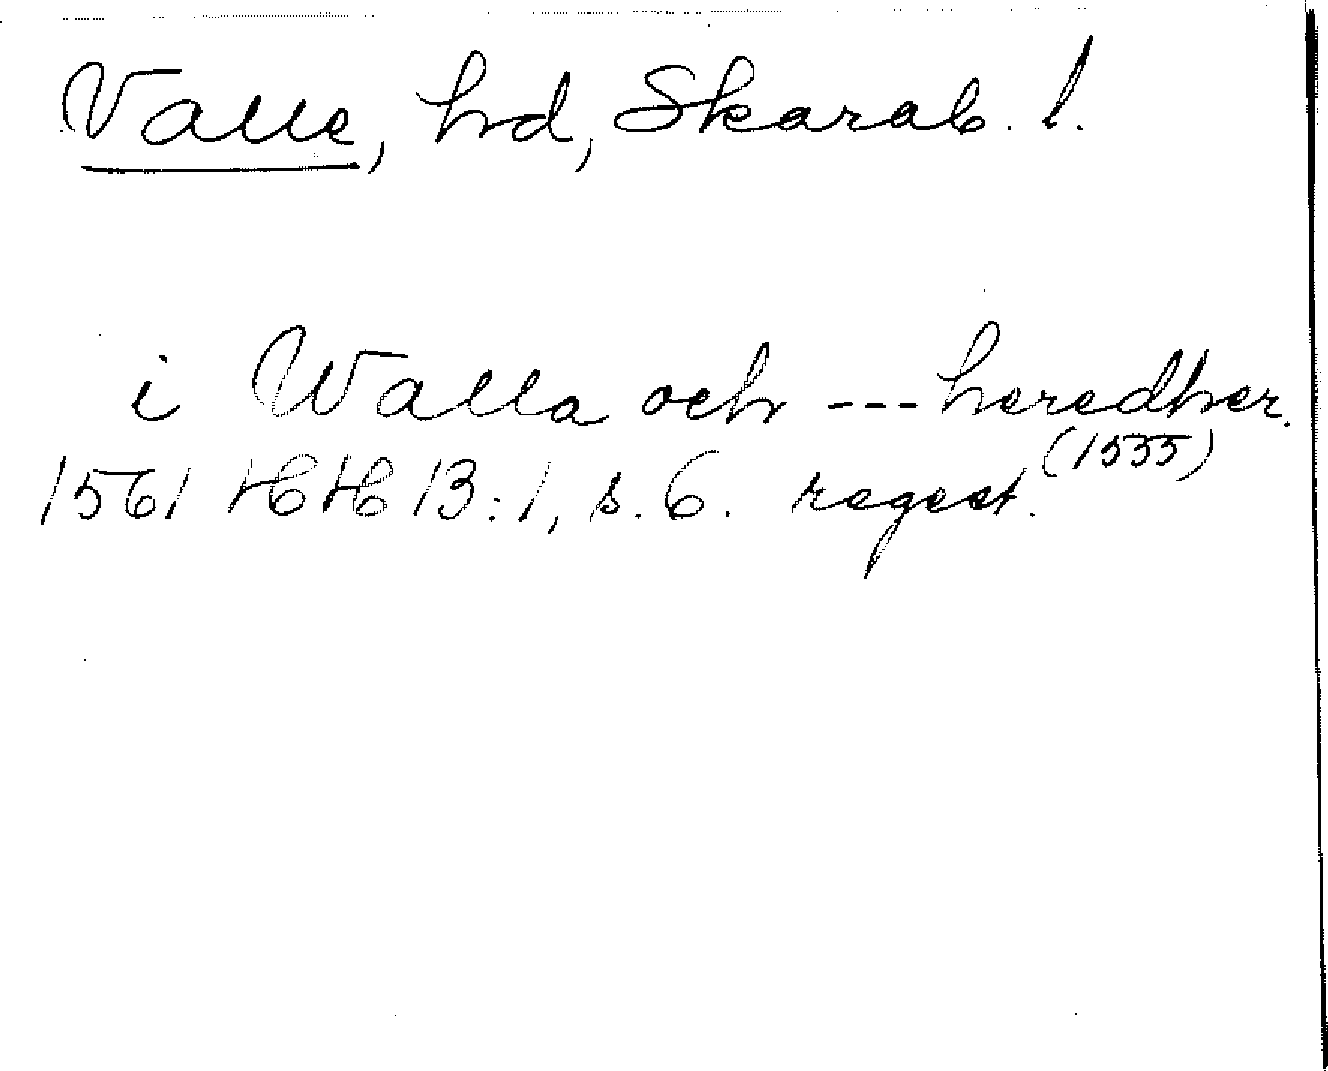 Valle, hd, Skarab. l.
i Walla och --- heredher.
(1535)
1561 HH 13:1, s. 6. regest.